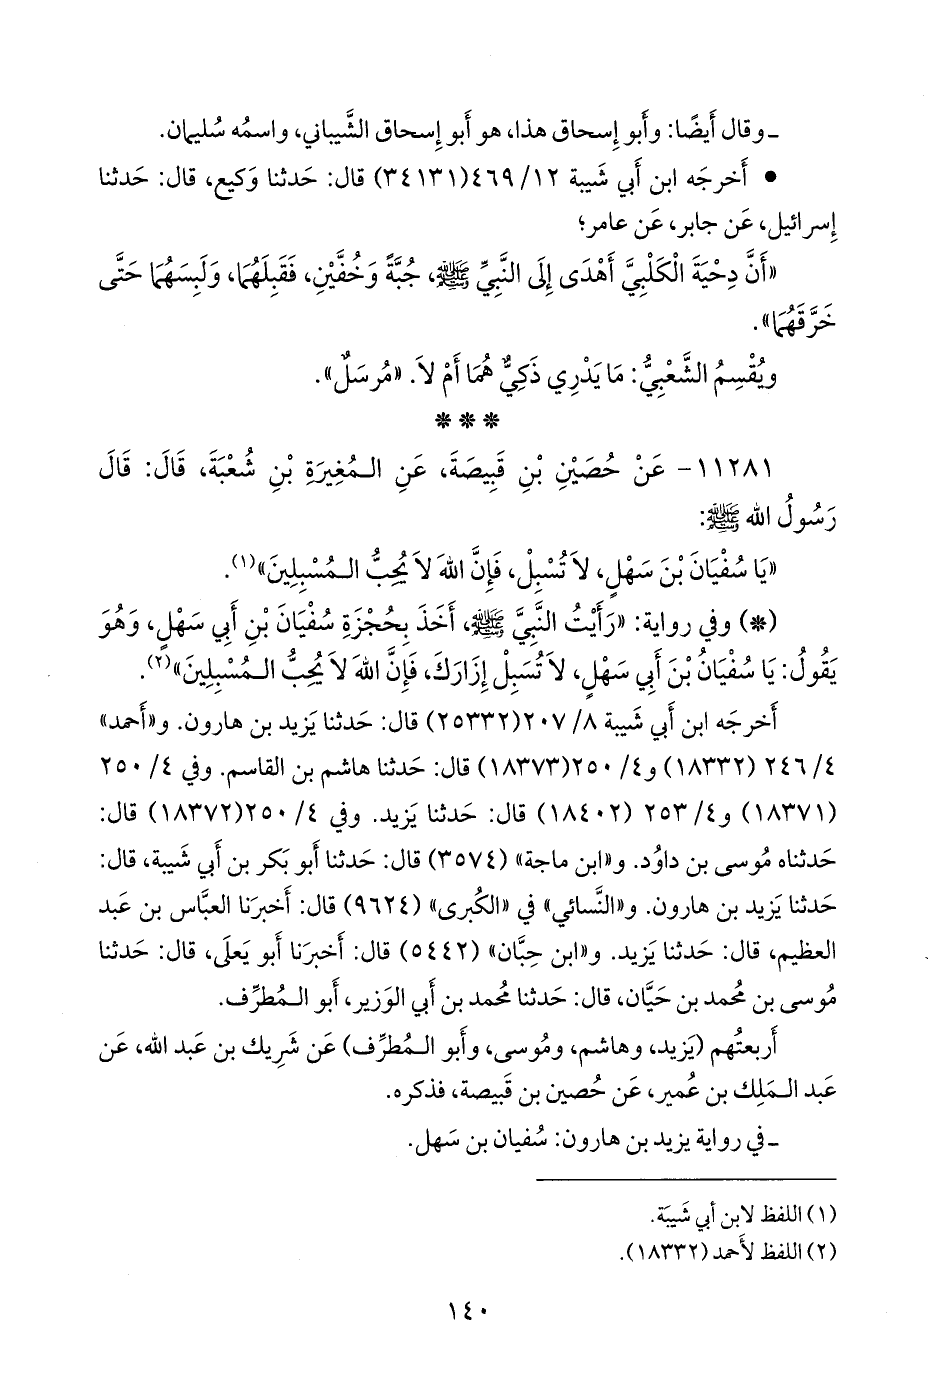 ـ وقال أَيضًا: وأَبو إِسحاق هذا، هو أَبو إِسحاق الشَّيباني، واسمُه سُليمان.
• أَخرجَه ابن أَبي شَيبة ١٢/ ٤٦٩(٣٤١٣١) قال: حَدثنا وَكيع، قال: حَدثنا
إِسرائيل، عَن جابر، عَن عامر؛
«أَنَّ دِحْيَةَ الْكَلْبِيَّ أَهْدَى إِلَى النَّبِيِّ ﷺ، جُبَّةً وَخُفَّيْنِ، فَقَبِلَهُمَا، وَلَبِسَهُمَا حَتَّى
خَرَّقَهُمَا».
ويُقْسِمُ الشَّعْبِيُّ: مَا يَدْرِي ذَكِيٌّ هُمَا أَمْ لاَ. «مُرسَلٌ».
* * *
١١٢٨١- عَنْ حُصَيْنِ بْنِ قَبِيصَةَ، عَنِ الـمُغِيرَةِ بْنِ شُعْبَةَ، قَالَ: قَالَ
رَسُولُ الله ﷺ:
«يَا سُفْيَانَ بْنَ سَهْلٍ، لاَ تُسْبِلْ، فَإِنَّ اللهَ لاَ يُحِبُّ الـمُسْبِلِينَ»(١).
(*) وفي رواية: «رَأَيْتُ النَّبِيَّ ﷺ، أَخَذَ بِحُجْزَةِ سُفْيَانَ بْنِ أَبِي سَهْلٍ، وَهُوَ
يَقُولُ: يَا سُفْيَانُ بْنَ أَبِي سَهْلٍ، لاَ تُسْبِلْ إِزَارَكَ، فَإِنَّ اللهَ لاَ يُحِبُّ الـمُسْبِلِينَ»(٢).
أَخرجَه ابن أَبي شَيبة ٨/ ٢٠٧(٢٥٣٣٢) قال: حَدثنا يَزيد بن هارون. و«أَحمد»
٤/ ٢٤٦ (١٨٣٣٢) و٤/ ٢٥٠(١٨٣٧٣) قال: حَدثنا هاشم بن القاسم. وفي ٤/ ٢٥٠
(١٨٣٧١) و٤/ ٢٥٣ (١٨٤٠٢) قال: حَدثنا يَزيد. وفي ٤/ ٢٥٠(١٨٣٧٢) قال:
حَدثناه مُوسى بن داوُد. و«ابن ماجة» (٣٥٧٤) قال: حَدثنا أَبو بَكر بن أَبي شَيبة، قال:
حَدثنا يَزيد بن هارون. و«النَّسائي» في «الكُبرى» (٩٦٢٤) قال: أَخبرَنا العبَّاس بن عَبد
العظيم، قال: حَدثنا يَزيد. و«ابن حِبَّان» (٥٤٤٢) قال: أَخبرَنا أَبو يَعلَى، قال: حَدثنا
مُوسى بن مُحمد بن حَيَّان، قال: حَدثنا مُحمد بن أَبي الوَزير، أَبو الـمُطرِّف.
أَربعتُهم (يَزيد، وهاشم، ومُوسى، وأَبو الـمُطرِّف) عَن شَريك بن عَبد الله، عَن
عَبد الـمَلِك بن عُمير، عَن حُصين بن قَبيصة، فذكره.
ـ في رواية يزيد بن هارون: سُفيان بن سَهل.
(١) اللفظ لابن أبي شَيبَة.
(٢) اللفظ لأَحمد (١٨٣٣٢).
١٤٠